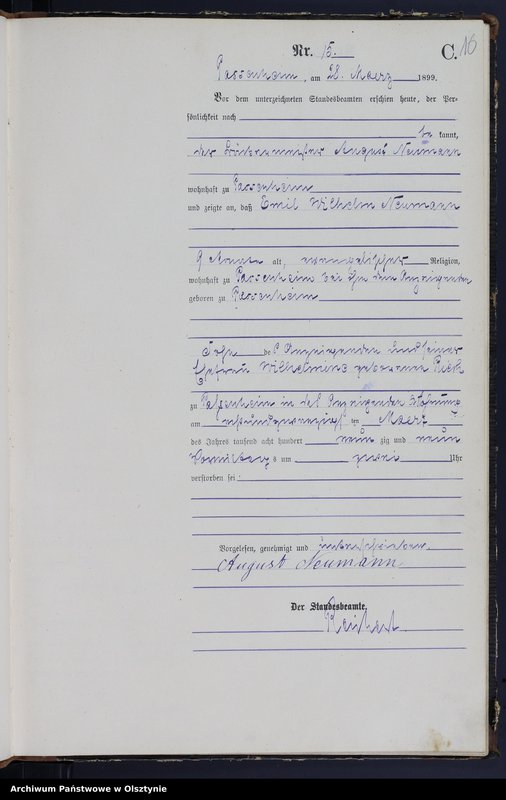 Nr. 15.
C.
16
Passenheim, am 28. Maerz 1899.
Vor dem unterzeichneten Standesbeamten erschien heute, der Per-
sönlichkeit nach
be kannt,
der August Neumann
wohnhaft zu Passenheim
und zeigte an, daß Emil Wilhelm Neumann
9 Monate alt, evangelischer Religion,
wohnhaft zu Passenheim bei ihm dem Anzeigenden
geboren zu Passenheim
Sohn des Anzeigenden und seiner
Ehefrau Wilhelmine geborenen
zu Passenheim in des Anzeigenden Wohnung
am achtundzwanzigsten Maerz
des Jahres tausend acht hundert neunzig und neun
Vormittags um zwei Uhr
verstorben sei
Vorgelesen, genehmigt und unterschrieben.
August Neumann
Der Standesbeamte.
Archiwum Państwowe w Olsztynie